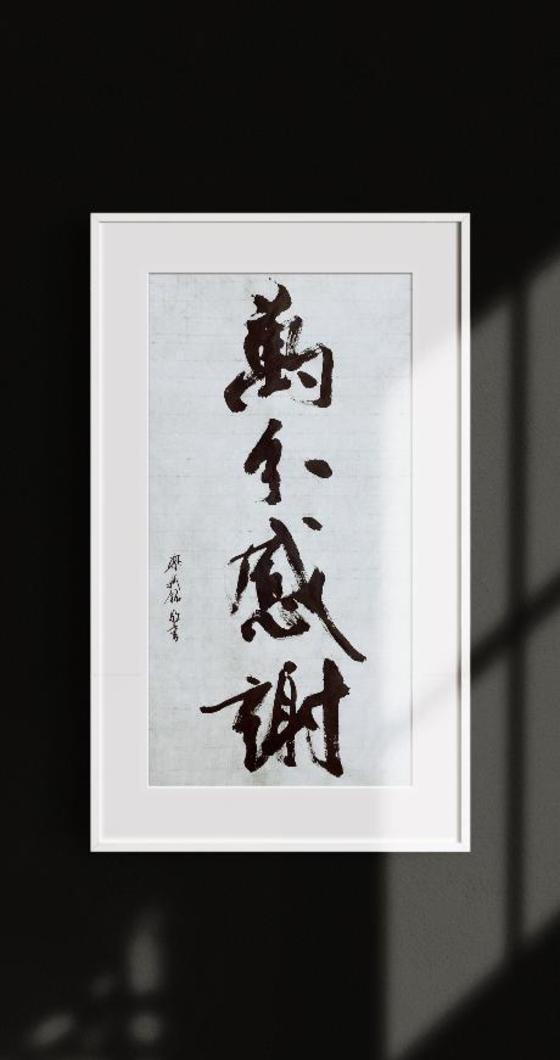 萬分感謝